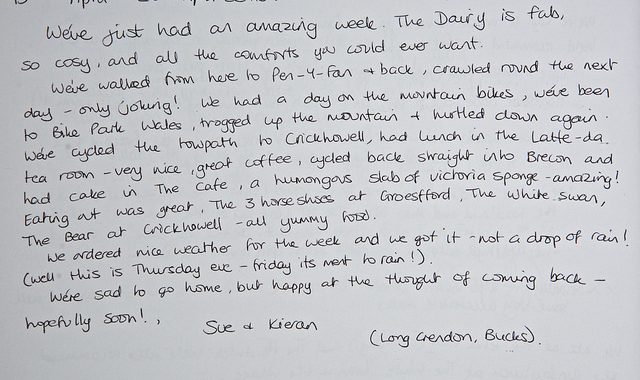 We've just had an amazing week. The Dairy is fab,
so cosy, and all the comforts you could ever want.
We've walked from here to Pen-y-Fan & back, crawled round the next
day - only joking! We had a day on the mountain bikes, we've been
to Bike Park Wales, trogged up the mountain & hurtled down again.
We've cycled the towpath to Crickhowell, had lunch in the Latte-da
tea room - very nice, great coffee, cycled back straight into Brecon and
had cake in The Cafe, a humongous slab of victoria sponge - amazing!
Eating out was great, The 3 horseshoes at Groesfford, The White Swan,
The Bear at Crickhowell - all yummy food.
We ordered nice weather for the week and we got it - not a drop of rain!
(well this is Thursday eve - friday its ment to rain!).
We're sad to go home, but happy at the thought of coming back -
hopefully soon!,
Sue & Kieran
(Long Crendon, Bucks).